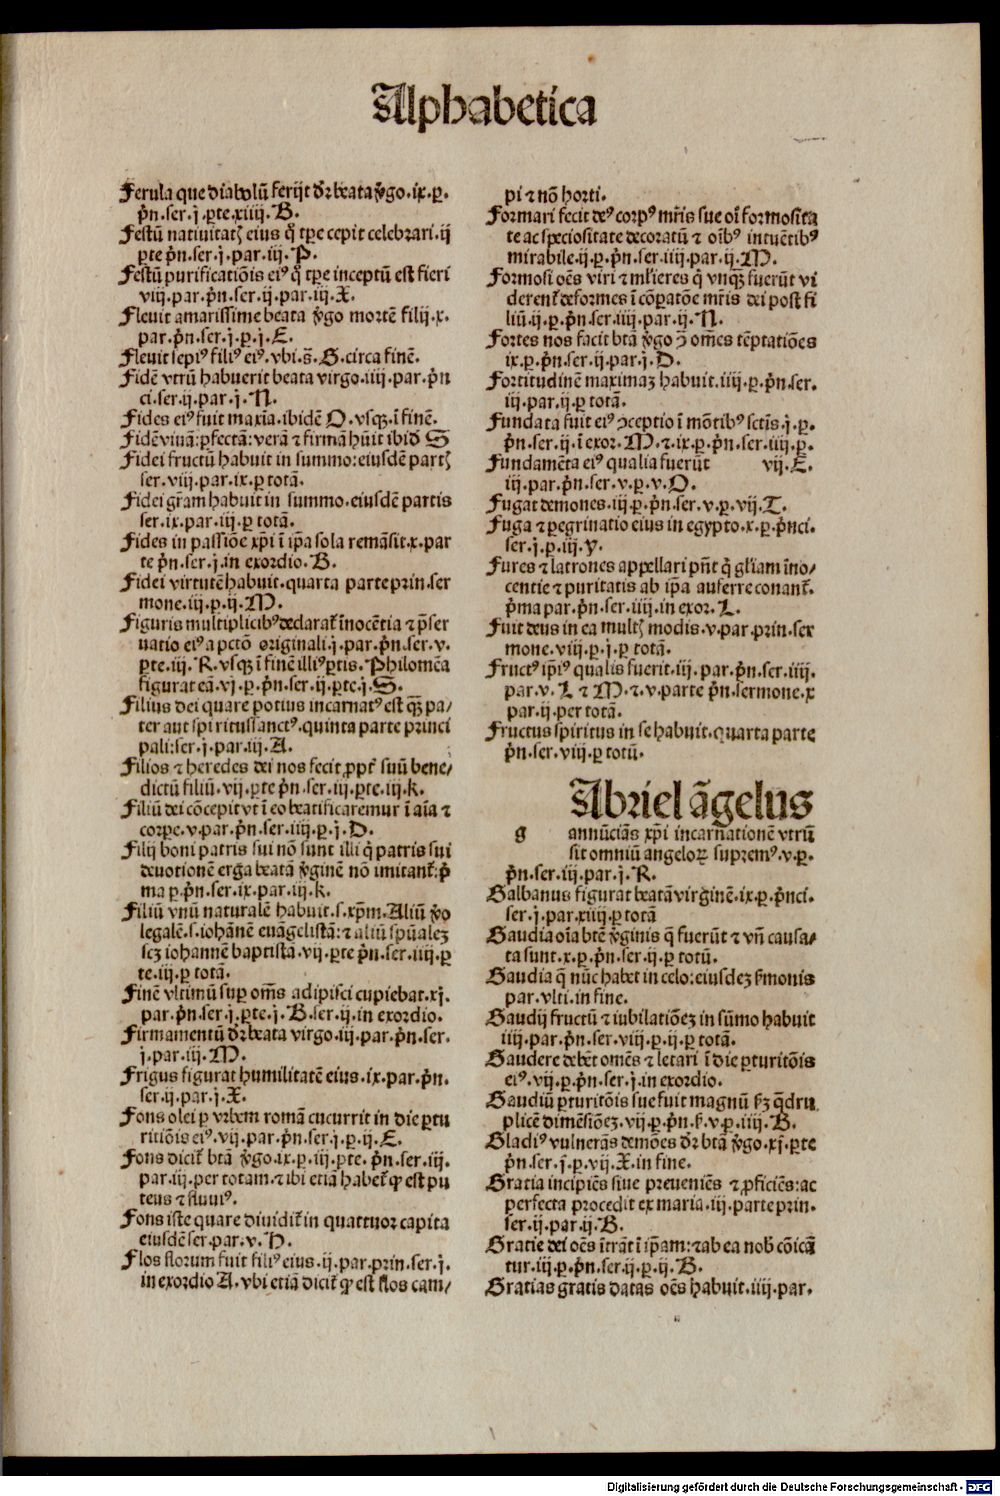 Alphabetica
Ferula que diabolū ferijt dr̄ beata v̄go.ix.p.
p̄n.ser.j.pte.xiiii.B.
Festū natiuitatꝭ eius q̄ tp̄e cepit celebrari.ij
pte p̄n.ser.j.par.iij.P.
Festū purificatiōis eiꝰ q̄ tp̄e inceptū est fieri
viij.par.p̄n.ser.ij.par.iij.X.
Fleuit amarissime beata v̄go mortē filij.x.
par.p̄n.ser.j.p.j.E.
Fleuit sepiꝰ filiꝰ eiꝰ.vbi.s̄.G.circa finē.
Fidē vtrū habuerit beata virgo.iiij.par.p̄n
ci.ser.ij.par.j.N.
Fides eiꝰ fuit maxīa.ibidē O.vsqꝫ.ī finē.
Fidē viuā:pfectā:verā ⁊ firmā hūit ibid̄ S
Fidei fructū habuit in summo:eiusdē partꝭ
ser.viij.par.ix.p totā.
Fidei gr̄am habuit in summo.eiusdē partis
ser.ix.par.iij.p totā.
Fides in passiōe xp̄i ī ip̄a sola remāsit.x.par
te p̄n.ser.j.in exordio.B.
Fidei virtutē habuit.quarta parte prin.ser
mone.iij.p.ij.M.
Figuris multiplicibꝰ declarat̄ īnocētia ⁊ p̄ser
uatio eiꝰ a pctō originali.j.par.p̄n.ser.v.
pte.iij.R.vsqꝫ ī finē illiꝰ ptis.Philomēa
figurat eā.vj.p.p̄n.ser.ij.pte.j.S.
Filius dei quare potius incarnatꝰ est qꝫ̄ pa/
ter aut spiritussanctꝰ.quinta parte princi
pali:ser.j.par.iij.A.
Filios ⁊ heredes dei nos fecit ꝓpt̄ suū bene/
dictū filiū.vij.pte p̄n.ser.iij.pte.iij.k.
Filiū dei cōcepit vt ī eo beatificaremur ī aīa ⁊
corpe.v.par.p̄n.ser.iiij.p.j.D.
Filij boni patris sui nō sunt illi q̄ patris sui
deuotionē erga beatā v̄ginē nō imitant̄:p̄
ma p.p̄n.ser.ix.par.iij.k.
Filiū vnū naturalē habuit.s.xp̄m.Aliū v̄o
legalē.s.iohānē euāgelistā:⁊ aliū spūalez
scꝫ iohannē baptistā.vij.pte p̄n.ser.iiij.p
te.iij.p totā.
Finē vltimū sup om̄s adipisci cupiebat.xj.
par.p̄n.ser.j.pte.j.B.ser.ij.in exordio.
Firmamentū dr̄ beata virgo.iij.par.p̄n.ser.
j.par.iij.M.
Frigus figurat humilitatē eius.ix.par.p̄n.
ser.ij.par.j.X.
Fons olei p vrbem romā cucurrit in die ptu
ritiōis eiꝰ.vij.par.p̄n.ser.j.p.ij.E.
Fons dicit̄ btā v̄go.ix.p.iij.pte.p̄n.ser.iij.
par.iij.per totam.⁊ ibi etiā habet̄ ꝙ est pu
teus ⁊ fluuiꝰ.
Fons iste quare diuidit̄ in quattuor capita
eiusdē ser.par.v.H.
Flos florum fuit filiꝰ eius.ij.par.prin.ser.j.
in exordio A.vbi etiā dicit̄ ꝙ est flos cam/
pi ⁊ nō horti.
Formari fecit deꝰ corpꝰ mr̄is sue oī formosita
te ac speciositate decoratū ⁊ oībꝰ intuētibꝰ
mirabile.ij.p.p̄n.ser.iiij.par.ij.M.
Formosi oēs viri ⁊ mlieres q̄ vnqꝫ̄ fuerūt vi
derent̄ deformes ī cōpatōe mr̄is dei post fi
liū.ij.p.p̄n.ser.iiij.par.ij.N.
Fortes nos facit btā v̄go ꝯ̄ om̄es tēptatiōes
ix.p.p̄n.ser.ij.par.j.D.
Fortitudinē maximaꝫ habuit.iiij.p.p̄n.ser.
iij.par.ij.p totā.
Fundata fuit eiꝰ ꝯceptio ī mōtibꝰ sctīs.j.p.
p̄n.ser.ij.ī exor.M.⁊.ix.p.p̄n.ser.iiij.p.
Fundamēta eiꝰ qualia fuerūt vij.E.
iij.par.p̄n.ser.v.p.v.O.
Fugat demones.iij.p.p̄n.ser.v.p.vij.T.
Fuga ⁊ pegrinatio eius in egypto.x.p.p̄nci.
ser.j.p.iij.y.
Fures ⁊ latrones appellari pn̄t q̄ gl̄iam īno/
centie ⁊ puritatis ab ip̄a auferre conant̄.
p̄ma par.p̄n.ser.iiij.in exor.L.
Fuit deus in ea multꝭ modis.v.par.prin.ser
mone.viij.p.j.p totā.
Fructꝰ ip̄iꝰ qualis fuerit.iij.par.p̄n.ser.iiij.
par.v.L ⁊ M.⁊.v.parte p̄n.sermone.x
par.ij.per totā.
Fructus spiritus in se habuit.quarta parte
p̄n.ser.viij.p totū.
Abriel āgelus
g annūciās xp̄i incarnationē vtrū
sit omniū angeloꝝ supremꝰ.v.p.
p̄n.ser.iij.par.j.R.
Galbanus figurat beatā virginē.ix.p.p̄nci.
ser.j.par.xiiij.p totā
Gaudia oīa btē v̄ginis q̄ fuerūt ⁊ vn̄ causa/
ta sunt.x.p.p̄n.ser.ij.p totū.
Gaudia q̄ nūc habet in celo:eiusdeꝫ s̄monis
par.vlti.in fine.
Gaudij fructū ⁊ iubilatiōeꝫ in sūmo habuit
iiij.par.p̄n.ser.viij.p.ij.p totā.
Gaudere debēt omēs ⁊ letari ī die pturitōis
eiꝰ.vij.p.p̄n.ser.j.in exordio.
Gaudiū pturitōis sue fuit magnū ẜꝫ q̄dru
plicē dimēsiōeꝫ.vij.p.p̄n.ẜ.v.p.iiij.B.
Gladiꝰ vulnerās demōes dr̄ btā v̄go.xj.pte
p̄n.ser.j.p.vij.X.in fine.
Gratia incipiēs siue preueniēs ⁊ ꝓficiēs:ac
perfecta procedit ex maria.iij.parte prin.
ser.ij.par.ij.B.
Gratie dei oēs ītrāt ī ip̄am:⁊ ab ea nob̄ cōicā
tur.iij.p.p̄n.ser.ij.p.ij.B.
Gratias gratis datas oēs habuit.iiij.par.
Digitalisierung gefördert durch die Deutsche Forschungsgemeinschaft - DFG